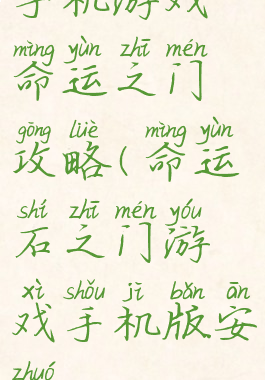 手机游戏
mìng yùn zhī mén
命运之门
gōng lüè mìng yùn
攻略(命运
shí zhī mén yóu
石之门游
xì shǒu jī bǎn ān
戏手机版安
zhuó